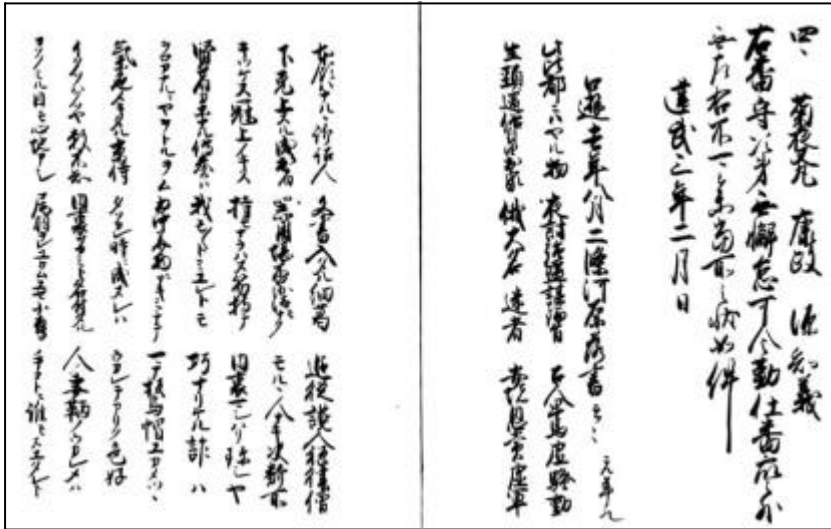 四、 菊夜丸 康政 源知義
右番守次第無懈怠可令勤仕番
無左右不 如件
建武三年二月日
口遊 去年八月二條河原落書云々 元年歟
此比都ニハヤル物 夜討強盗謀綸旨 召人早馬虚騒動
生頸還俗自由出家 俄大名 迷者 安堵恩賞虚軍
本領ハナルヽ訴訟人 文書入タル細葛 追従讒人禅律僧
下克上スル成出者 器用堪否沙汰モナク モルヽ人ナキ決断所
キツケヌ冠上ノキヌ 持モナラハヌ笏持テ 内裏マシハリ珍シヤ
賢者カホナル傳奏ハ 我モ々々トミユレトモ 巧ナリケル詐ハ
ヲロカナルニヤヲトルラム 為中美物ニアキミチテ マナ板烏帽子ユカメツヽ
気色メキタル京侍 タソカレ時ニ成ヌレハ ウカレテアリク色好
イクソハクソヤ数不知 内裏ヲカミト名付タル 人ノ妻鞆ノウカレメハ
ヨソノミル目モ心地アシ 尾羽ヲレユカムエセ小鷹 手コトニ誰モスエタレト